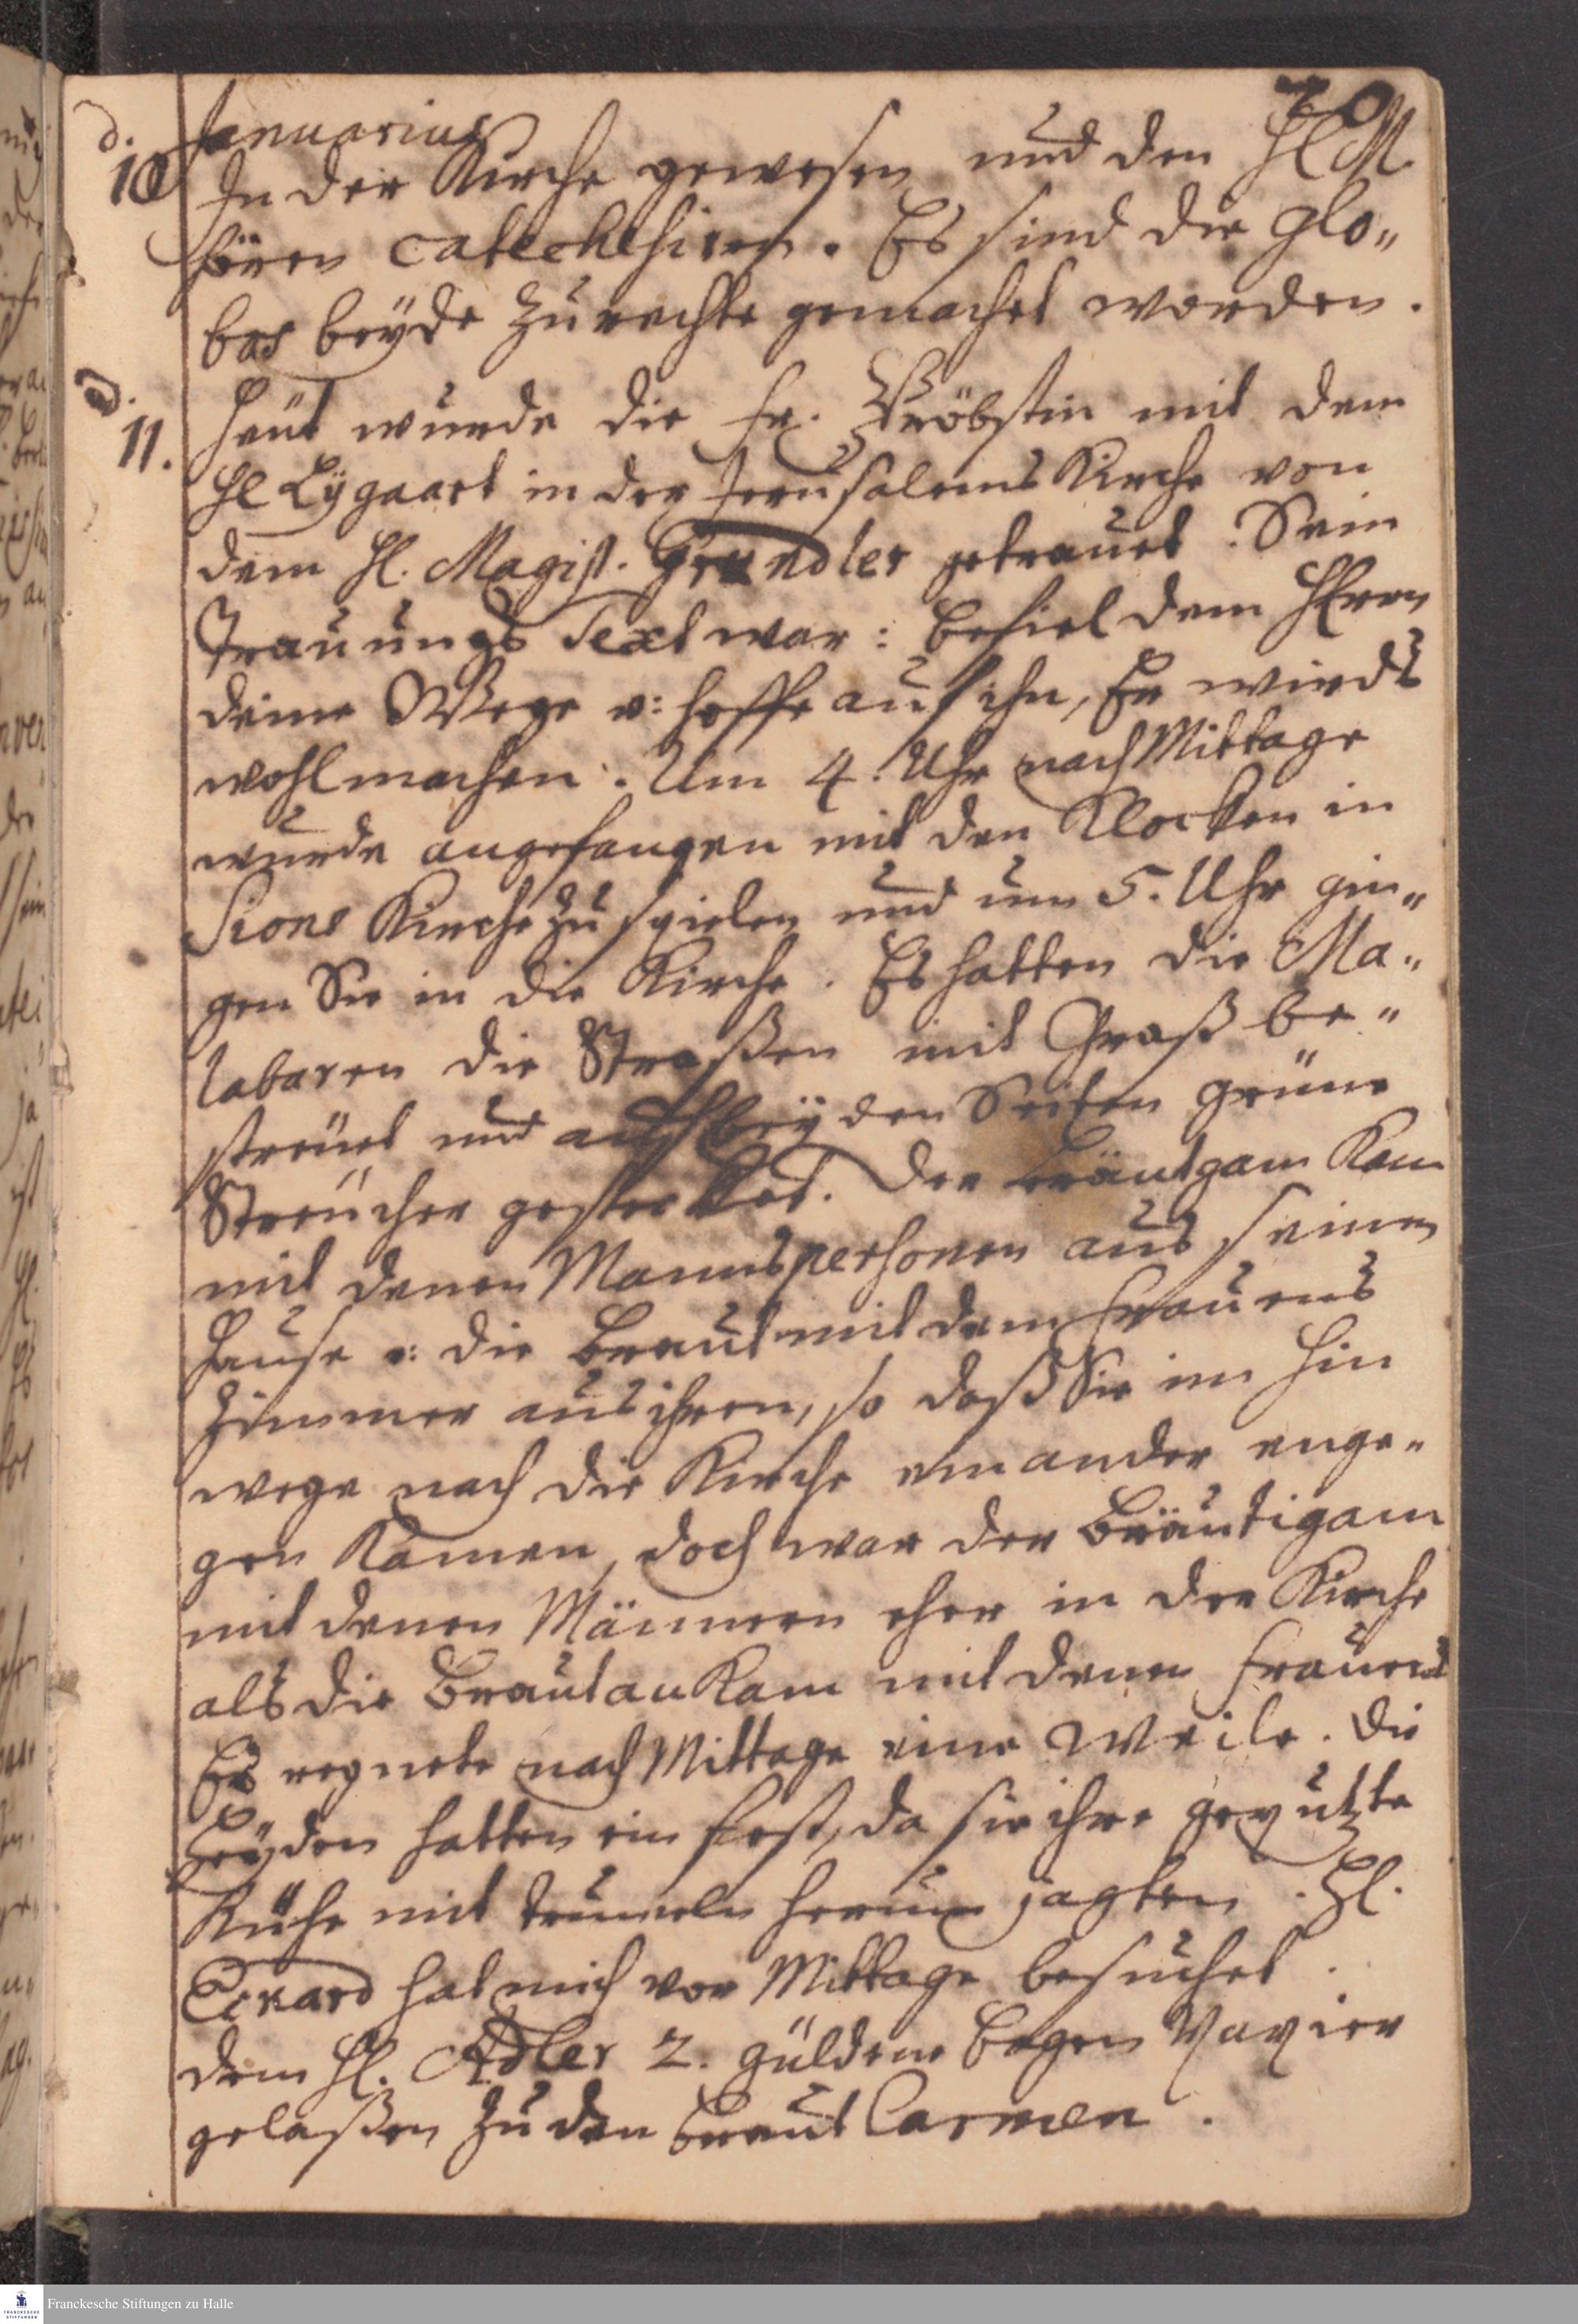 20
Januarius
d.
10 In der Kirche gewesen und den Hl M.
hören catechesiren. Es sind die Glo„
bos beÿde zu rechte gemachet worden.
d.
11. Heut wurde die Fr. Pröbstin mit dem
Hl Lÿgaart in der Jerusalems Kirche von
dem Hl. Magist. Grundler getrauet. Sein
Trauungs Text war: Befiel dem HErrn
deine Wege u: hoffe auf ihn, Er wirds
wohlmachen. Um 4. Uhr nach Mittage
wurde angefangen mit den Klocken in
Sions Kirche zu spielen und um 5. Uhr gin„
gen Sie in die Kirche. Es hatten die Ma„
labaren die Straßen mit Graß be„
streuet und auf beÿden Seiten grüne
Streucher gestecket. Der Bräutgam kam
mit denen Mannspersonen aus seinem
Hause u: die Braut mit dem Frauens
Zimmer aus ihren, so daß Sie im hin
wege nach die Kirche einander entge„
gen kamen, doch war der Bräutigam
mit denen Männern eher in der Kirche
als die Braut ankam mit denen Frauens
Es regnete nach Mittage eine Weile. Die
Heÿden hatten ein Fest, da sie ihre geputzte
Kühe mit trumeln herum jagten. Hl.
Eckard hat mich vor Mittage besuchet.
dem Hl. Adler 2. güldene Bogen Papier
gelaßen zu den Braut Carmen.
Franckesche Stiftungen zu Halle